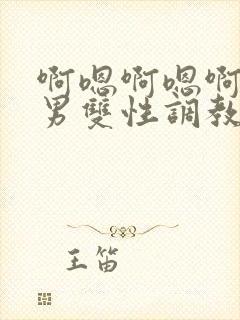 啊嗯啊嗯啊
男雙性調教
王笛